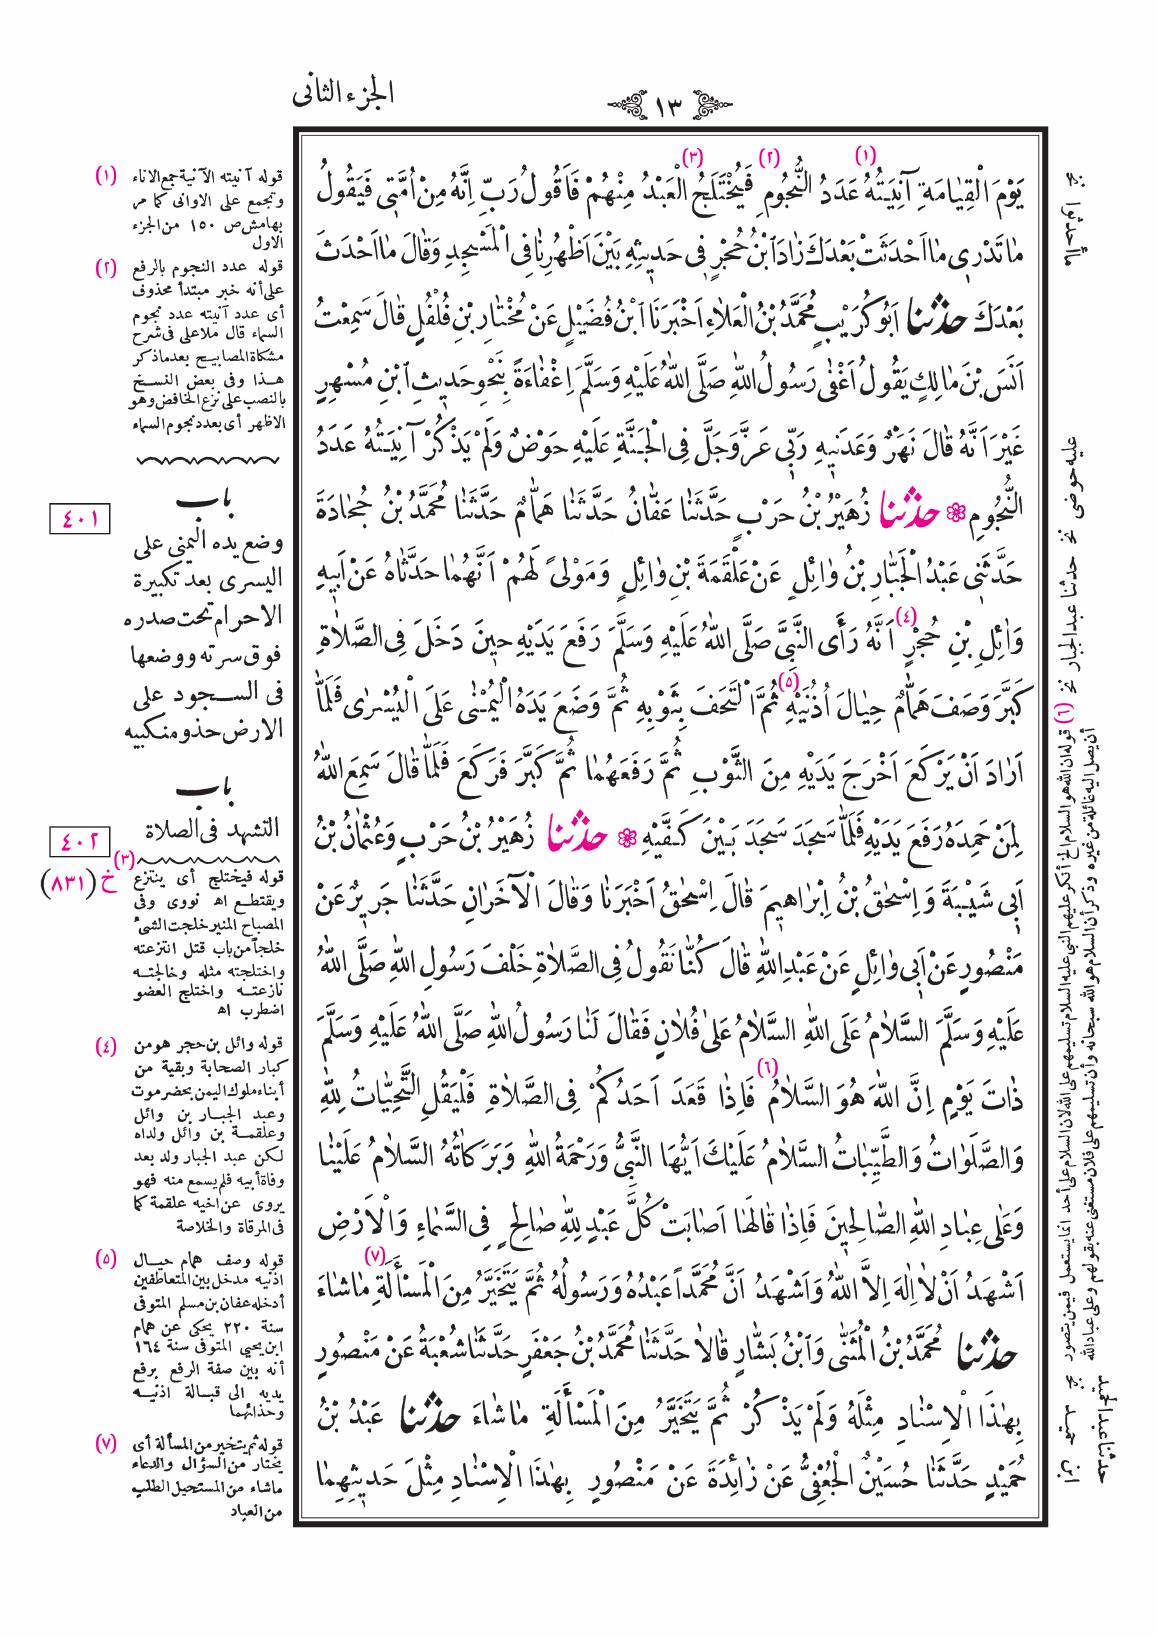 الجزء الثانى
١٣
يَوْمَ الْقِيَامَةِ آنِيَتُهُ (١) عَدَدُ النُّجُومِ (٢) فَيُخْتَلَجُ (٣) الْعَبْدُ مِنْهُمْ فَاَقُولُ رَبِّ اِنَّهُ مِنْ اُمَّتِى فَيَقُولُ
مَا تَدْرِى مَا اَحْدَثَتْ بَعْدَكَ زَادَ ابْنُ حُجْرٍ فِى حَدِيثِهِ بَيْنَ اَظْهُرِنَا فِى الْمَسْجِدِ وَقَالَ مَا اَحْدَثَ
بَعْدَكَ حدثنا اَبُو كُرَيْبٍ مُحَمَّدُ بْنُ الْعَلَاءِ اَخْبَرَنَا ابْنُ فُضَيْلٍ عَنْ مُخْتَارِ بْنِ فُلْفُلٍ قَالَ سَمِعْتُ
اَنَسَ بْنَ مَالِكٍ يَقُولُ اَغْفٰى رَسُولُ اللّٰهِ صَلَّى اللّٰهُ عَلَيْهِ وَسَلَّمَ اِغْفَاءَةً بِنَحْوِ حَدِيثِ ابْنِ مُسْهِرٍ
غَيْرَ اَنَّهُ قَالَ نَهَرٌ وَعَدَنِيهِ رَبِّى عَزَّ وَجَلَّ فِى الْجَنَّةِ عَلَيْهِ حَوْضٌ وَلَمْ يَذْكُرْ آنِيَتُهُ عَدَدُ
النُّجُومِ حدثنا زُهَيْرُ بْنُ حَرْبٍ حَدَّثَنَا عَفَّانُ حَدَّثَنَا هَمَّامٌ حَدَّثَنَا مُحَمَّدُ بْنُ جُحَادَةَ
حَدَّثَنِى عَبْدُ الْجَبَّارِ بْنُ وَائِلٍ عَنْ عَلْقَمَةَ بْنِ وَائِلٍ وَمَوْلىً لَهُمْ اَنَّهُمَا حَدَّثَاهُ عَنْ اَبِيهِ
وَائِلِ بْنِ حُجْرٍ (٤) اَنَّهُ رَأَى النَّبِىَّ صَلَّى اللّٰهُ عَلَيْهِ وَسَلَّمَ رَفَعَ يَدَيْهِ حِينَ دَخَلَ فِى الصَّلَاةِ
كَبَّرَ وَصَفَ هَمَّامٌ حِيَالَ اُذُنَيْهِ (٥) ثُمَّ الْتَحَفَ بِثَوْبِهِ ثُمَّ وَضَعَ يَدَهُ الْيُمْنٰى عَلَى الْيُسْرٰى فَلَمَّا
اَرَادَ اَنْ يَرْكَعَ اَخْرَجَ يَدَيْهِ مِنَ الثَّوْبِ ثُمَّ رَفَعَهُمَا ثُمَّ كَبَّرَ فَرَكَعَ فَلَمَّا قَالَ سَمِعَ اللّٰهُ
لِمَنْ حَمِدَهُ رَفَعَ يَدَيْهِ فَلَمَّا سَجَدَ سَجَدَ بَيْنَ كَفَّيْهِ حدثنا زُهَيْرُ بْنُ حَرْبٍ وَعُثْمَانُ بْنُ
اَبِى شَيْبَةَ وَاِسْحٰقُ بْنُ اِبْرَاهِيمَ قَالَ اِسْحٰقُ اَخْبَرَنَا وَقَالَ الْآخَرَانِ حَدَّثَنَا جَرِيرٌ عَنْ
مَنْصُورٍ عَنْ اَبِى وَائِلٍ عَنْ عَبْدِ اللّٰهِ قَالَ كُنَّا نَقُولُ فِى الصَّلَاةِ خَلْفَ رَسُولِ اللّٰهِ صَلَّى اللّٰهُ
عَلَيْهِ وَسَلَّمَ السَّلَامُ عَلَى اللّٰهِ السَّلَامُ عَلٰى فُلَانٍ فَقَالَ لَنَا رَسُولُ اللّٰهِ صَلَّى اللّٰهُ عَلَيْهِ وَسَلَّمَ
ذَاتَ يَوْمٍ اِنَّ اللّٰهَ هُوَ السَّلَامُ (٦) فَاِذَا قَعَدَ اَحَدُكُمْ فِى الصَّلَاةِ فَلْيَقُلِ التَّحِيَّاتُ لِلّٰهِ
وَالصَّلَوَاتُ وَالطَّيِّبَاتُ السَّلَامُ عَلَيْكَ اَيُّهَا النَّبِىُّ وَرَحْمَةُ اللّٰهِ وَبَرَكَاتُهُ السَّلَامُ عَلَيْنَا
وَعَلٰى عِبَادِ اللّٰهِ الصَّالِحِينَ فَاِذَا قَالَهَا اَصَابَتْ كُلَّ عَبْدٍ لِلّٰهِ صَالِحٍ فِى السَّمَاءِ وَالْاَرْضِ
اَشْهَدُ اَنْ لَا اِلٰهَ اِلَّا اللّٰهُ وَاَشْهَدُ اَنَّ مُحَمَّداً عَبْدُهُ وَرَسُولُهُ ثُمَّ يَتَخَيَّرُ مِنَ الْمَسْأَلَةِ (٧) مَا شَاءَ
حدثنا مُحَمَّدُ بْنُ الْمُثَنّٰى وَابْنُ بَشَّارٍ قَالَا حَدَّثَنَا مُحَمَّدُ بْنُ جَعْفَرٍ حَدَّثَنَا شُعْبَةُ عَنْ مَنْصُورٍ
بِهٰذَا الْاِسْنَادِ مِثْلَهُ وَلَمْ يَذْكُرْ ثُمَّ يَتَخَيَّرُ مِنَ الْمَسْأَلَةِ مَا شَاءَ حدثنا عَبْدُ بْنُ
حُمَيْدٍ حَدَّثَنَا حُسَيْنٌ الْجُعْفِىُّ عَنْ زَائِدَةَ عَنْ مَنْصُورٍ بِهٰذَا الْاِسْنَادِ مِثْلَ حَدِيثِهِمَا
(١) قوله آنيته الآنية جمع الاناء
وتجمع على الاوانى كما مر
بهامش ص ١٥٠ من الجزء
الاول
(٢) قوله عدد النجوم بالرفع
على أنه خبر مبتدأ محذوف
أى عدد آنيته عدد نجوم
السماء قال ملا على فى شرح
مشكاة المصابيح بعد ما ذكر
هذا وفى بعض النسخ
بالنصب على نزع الخافض وهو
الاظهر أى بعدد نجوم السماء
باب
٤٠١
وضع يده اليمنى على
اليسرى بعد تكبيرة
الاحرام تحت صدره
فوق سرته ووضعها
فى السجود على
الارض حذو منكبيه
باب
٤٠٢
التشهد فى الصلاة
خ (٨٣١)
(٣) قوله فيختلج أى ينتزع
ويقتطع اه نووى وفى
المصباح المنير خلجت الشىء
خلجاً من باب قتل انتزعته
واختلجته مثله وخالجته
نازعته واختلج العضو
اضطرب اه
(٤) قوله وائل بن حجر هو من
كبار الصحابة وبقية من
أبناء ملوك اليمن بحضرموت
وعبد الجبار بن وائل
وعلقمة بن وائل ولداه
لكن عبد الجبار ولد بعد
وفاة أبيه فلم يسمع منه فهو
يروى عن اخيه علقمة كما
فى المرقاة والخلاصة
(٥) قوله وصف همام حيال
اذنيه مدخل بين المتعاطفين
أدخله عفان بن مسلم المتوفى
سنة ٢٢٠ يحكى عن همام
ابن يحيى المتوفى سنة ١٦٤
أنه بين صفة الرفع برفع
يديه الى قبالة اذنيه
وحذائهما
(٧) قوله ثم يتخير من المسألة أى
يختار من السؤال والدعاء
ما شاء من المستحيل الطلب
من العباد
ما أحدثوا نخ
عليه حوضى نخ حدثنا عبد الجبار نخ
(٦) قوله ان الله هو السلام الخ أنكر عليهم النبى عليه السلام تسليمهم على الله لان السلام على أحد انما يستعمل فيمن يتصور
أن يصل اليه غائلة من غيره وذكر أن السلام هو الله سبحانه وأن تسليمهم على فلان مستغنى عنه بقولهم وعلى عباد الله
حدثنا عبد الحميد
ابن حميد نخ